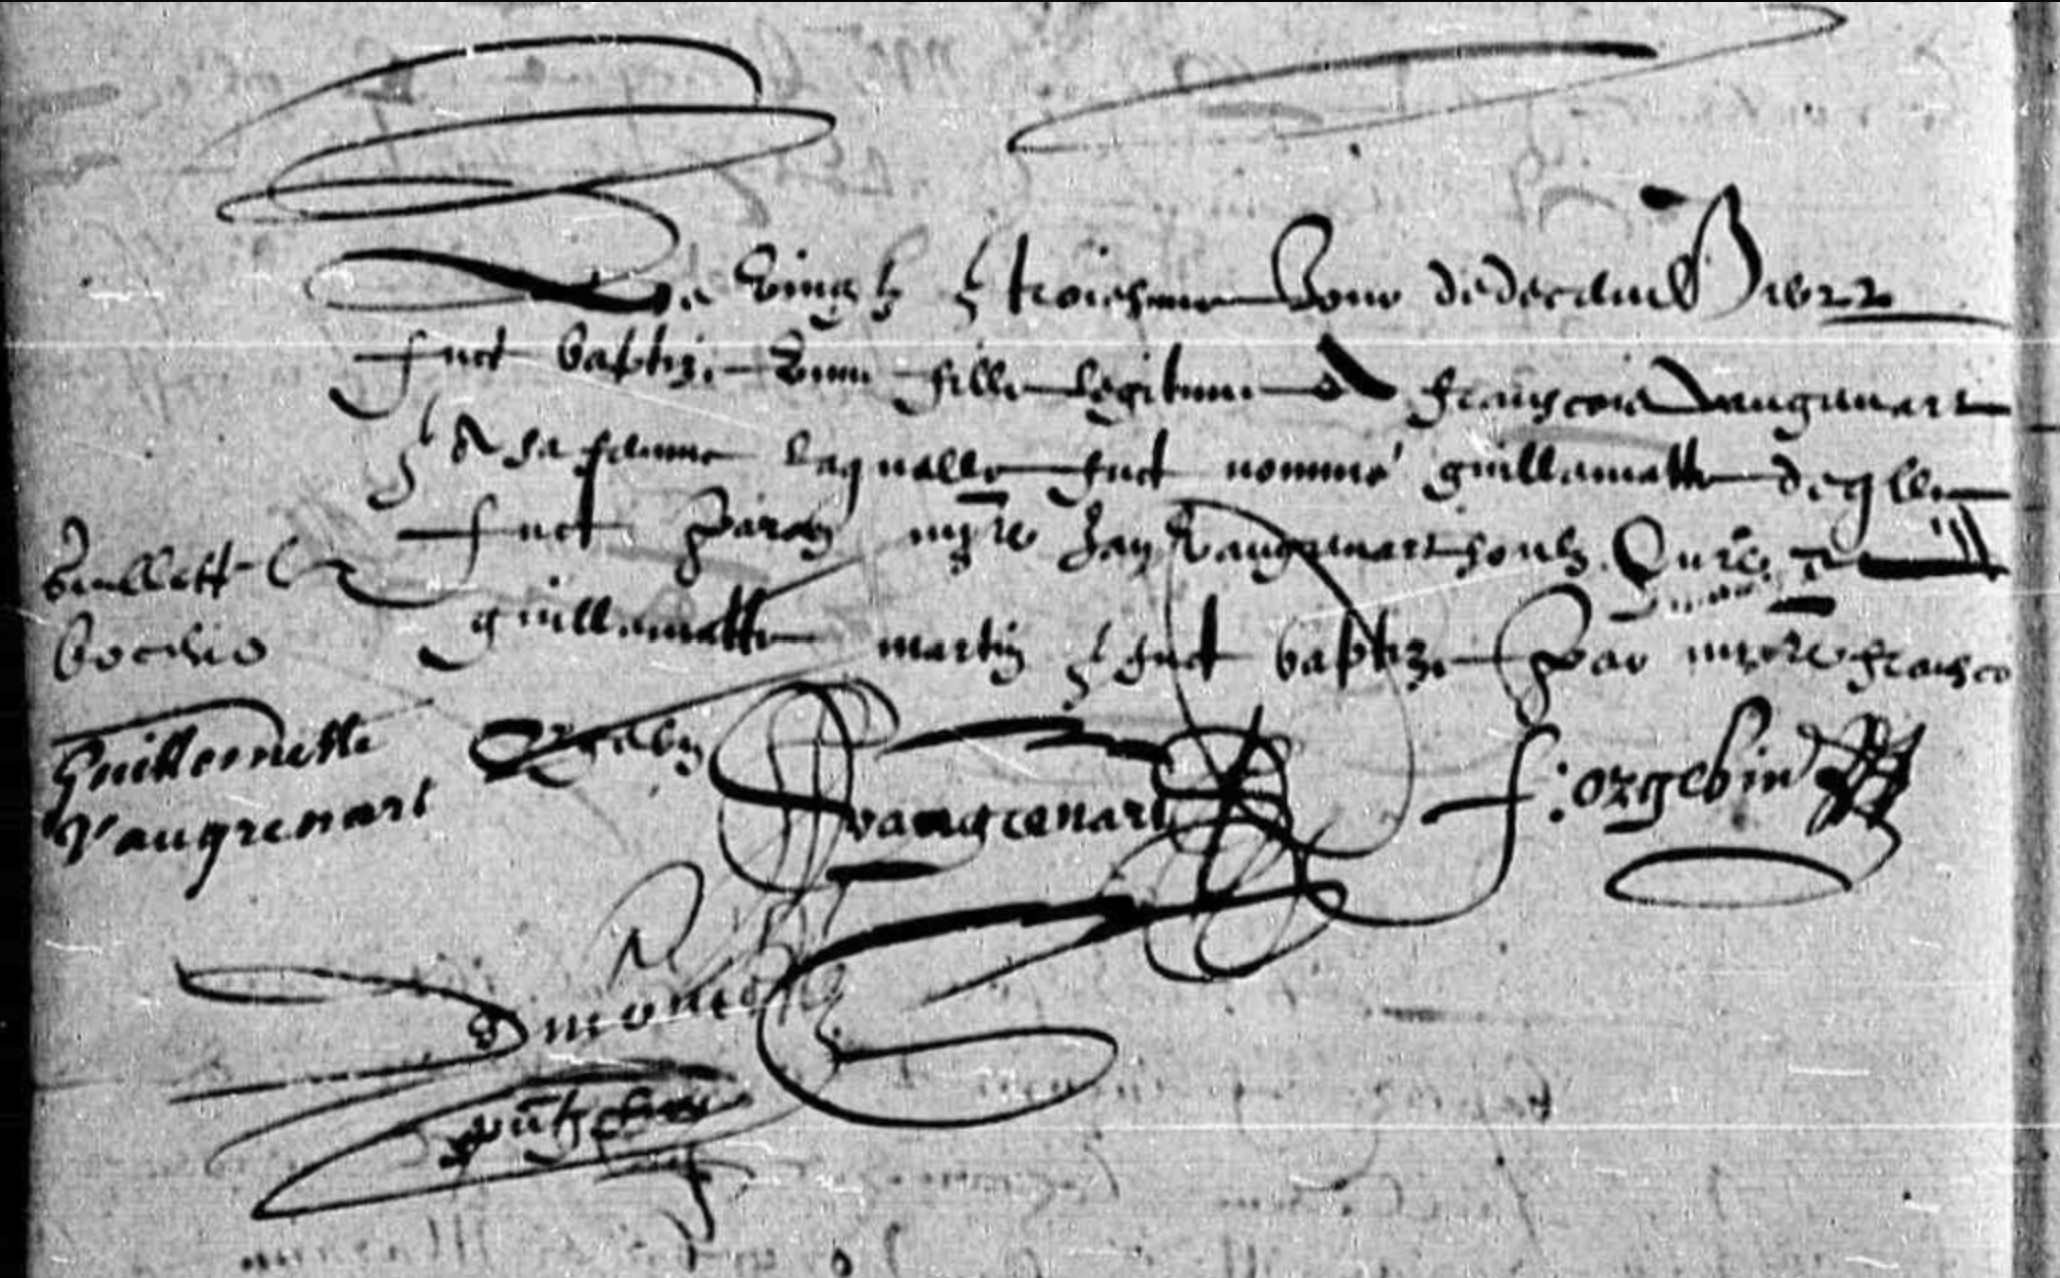 Le vingt et troiesme Jour de decembre 1622
fuct baptize une fille legitime de françois Vaugrenart
et de sa femme laqualle fuct nommé guillamatte de qlle
fuct parain mre Jan Vaugrenart soubz Curé et
guillamatte martin et fuct baptize par missre françois
Orgebin
bocher
Guillemette
Vaugrenart
vaugrenart
F: orgebin